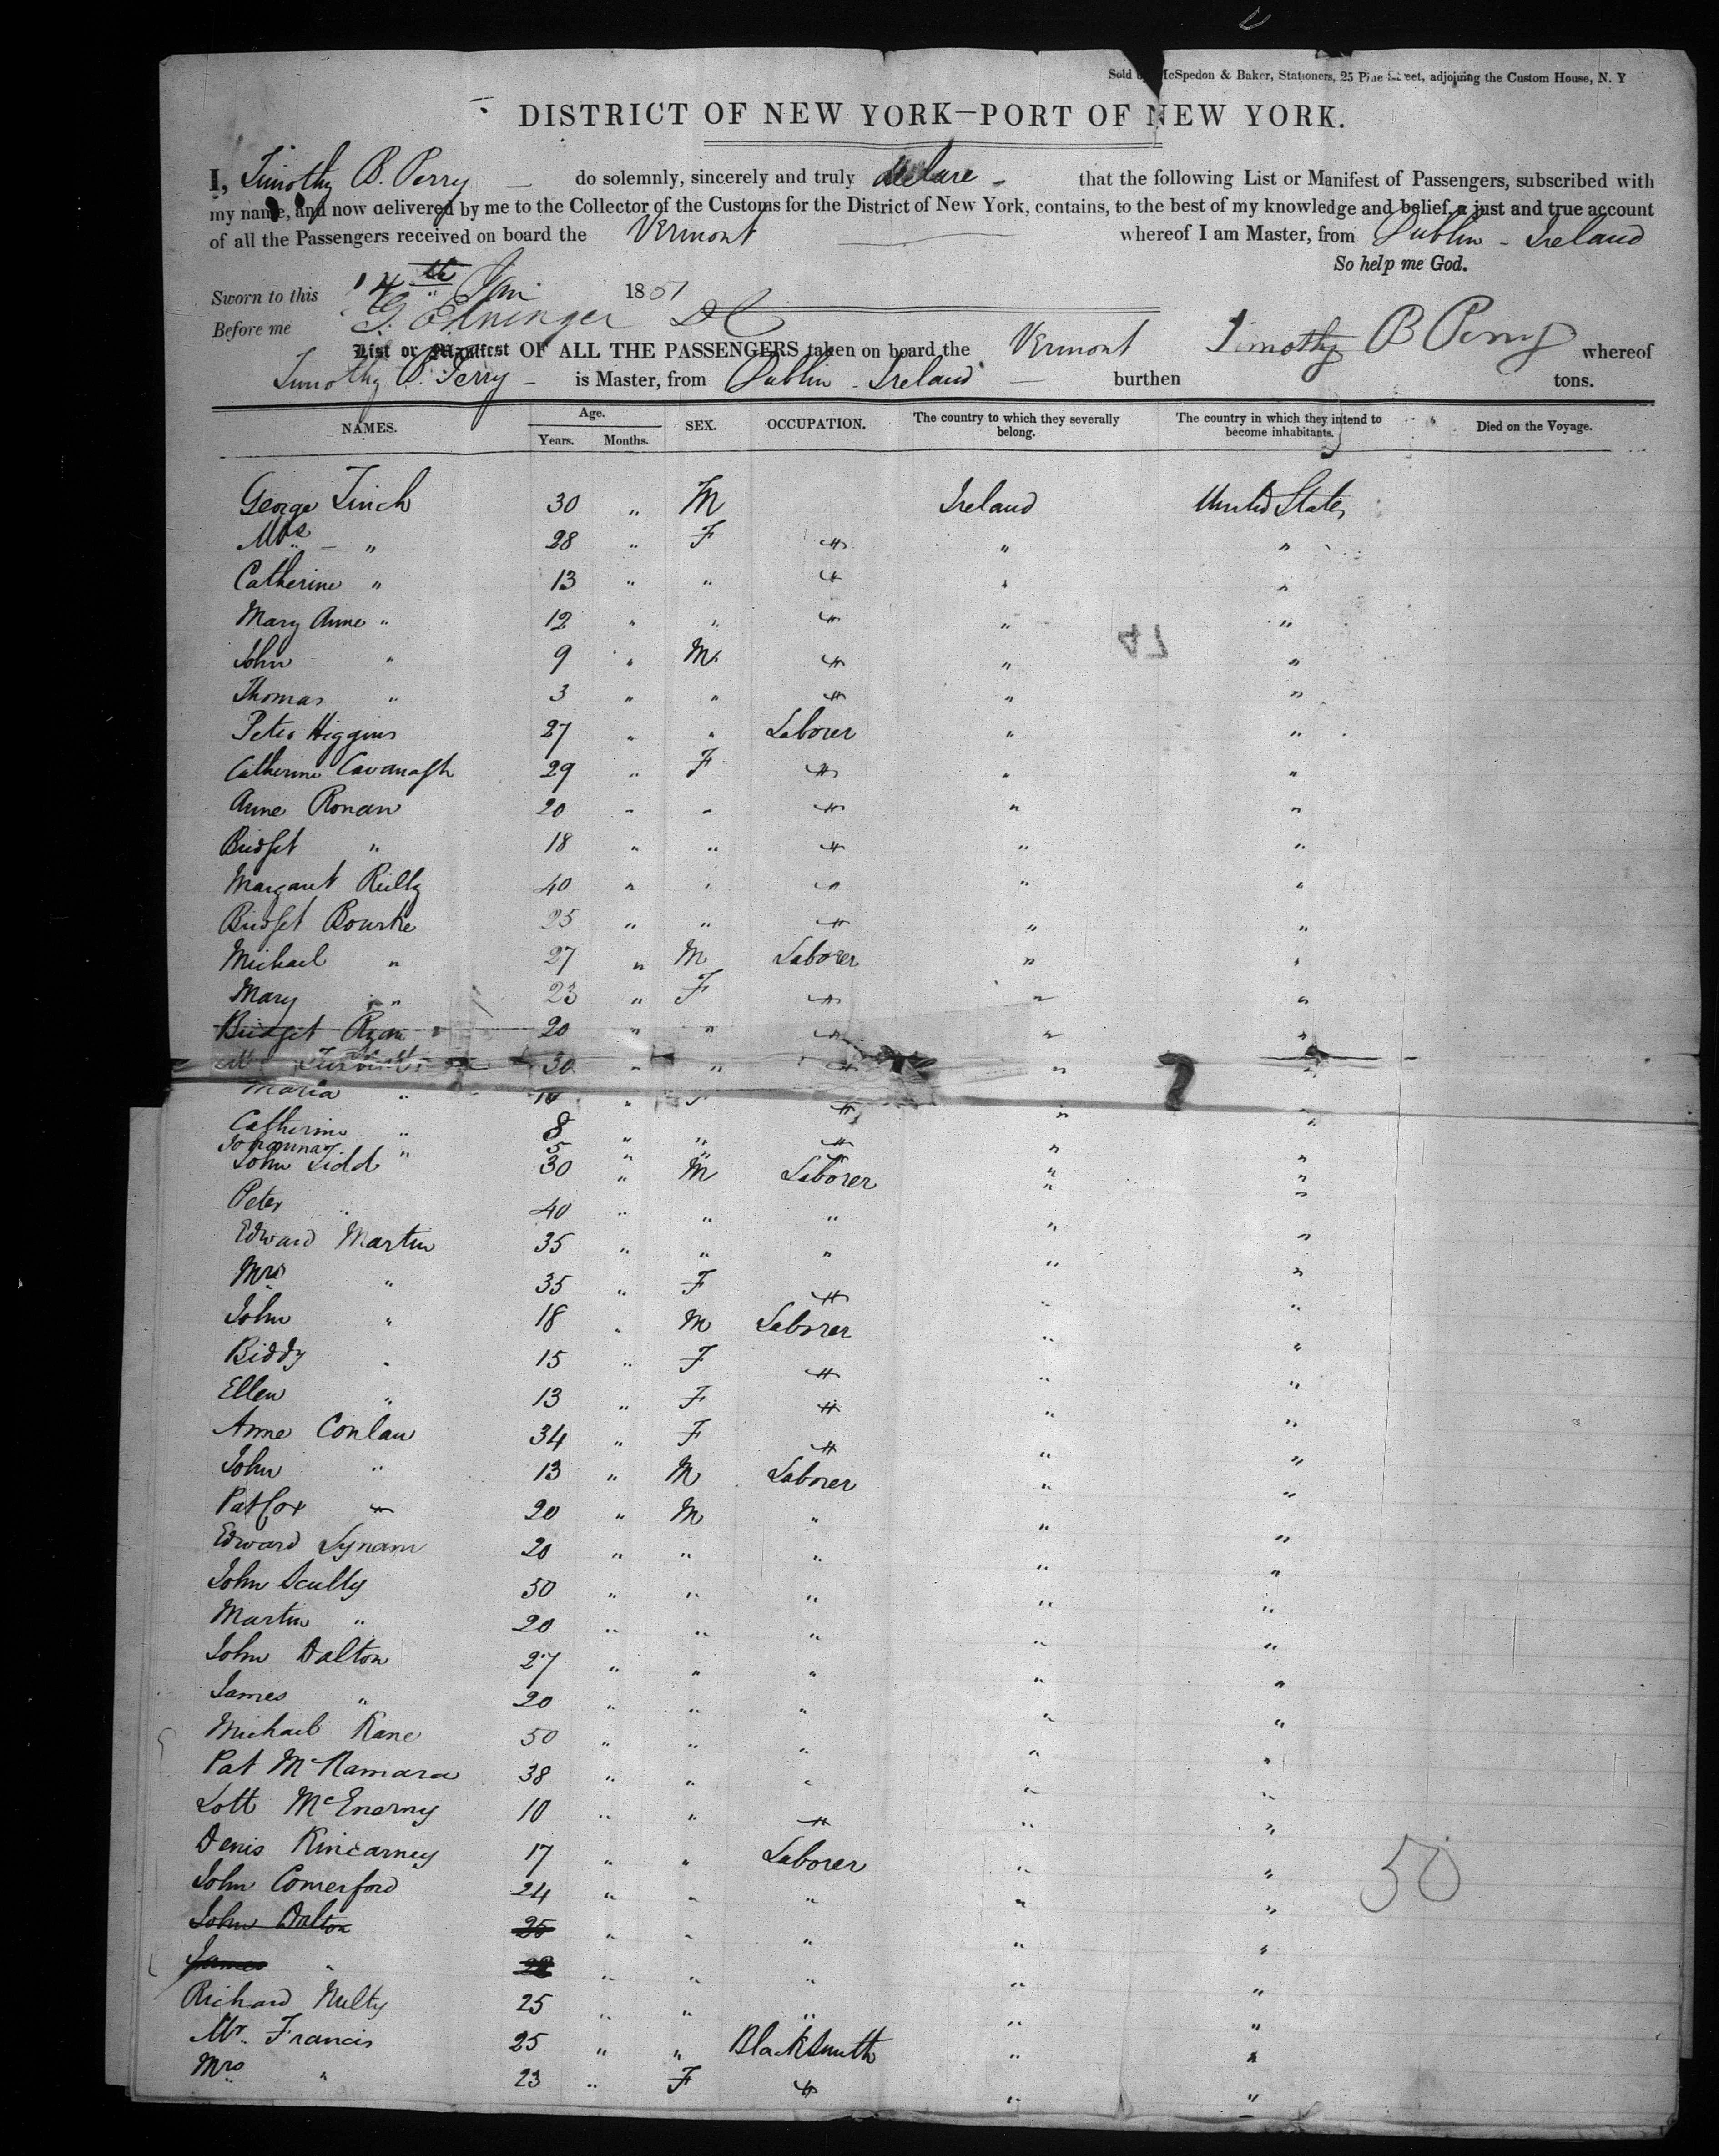 Sold by McSpedon & Baker, Stationers, 25 Pine Street, adjoining the Custom House, N. Y
DISTRICT OF NEW YORK—PORT OF NEW YORK.
I, Timothy B. Perry — do solemnly, sincerely and truly declare - that the following List or Manifest of Passengers, subscribed with
my name, and now delivered by me to the Collector of the Customs for the District of New York, contains, to the best of my knowledge and belief, a just and true account
of all the Passengers received on board the Vermont whereof I am Master, from Dublin - Ireland
So help me God.
Sworn to this 14th Jan 1851
Before me
Timothy B Perry
List or Manifest OF ALL THE PASSENGERS taken on board the Vermont whereof
Timothy B. Perry - is Master, from Dublin - Ireland — burthen tons.
NAMES. Age. Years. Months. SEX. OCCUPATION. The country to which they severally belong. The country in which they intend to become inhabitants. Died on the Voyage.
George Finch 30 " M Ireland United States
Mrs — " 28 " F " " "
Catherine " 13 " " " " "
Mary Anne " 12 " " " " "
John " 9 " M " " "
47
Thomas " 3 " " " " "
Peter Higgins 27 " " Laborer " "
Catherine Cavanagh 29 " F " " "
Anne Ronan 20 " " " " "
Bridget " 18 " " " " "
Margaret Reilly 40 " " " " "
Bridget Bourke 25 " " " " "
Michael " 27 " M Laborer " "
Mary " 23 " F " " "
Bridget Ryan 20 " " " " "
30 " " " " "
7
Maria " " " " "
Catherine " 8 " " " " "
Johanna " 5 " " " " "
John Lidd 30 " M Laborer " "
Peter " 40 " " " " "
Edward Martin 35 " " " " "
Mrs " 35 " F " " "
John " 18 " M Laborer " "
Biddy " 15 " F " " "
Ellen " 13 " F " " "
Anne Conlan 34 " F " " "
John " 13 " M Laborer " "
Pat Cox 20 " M " " "
Edward Lynam 20 " " " " "
John Scully 50 " " " " "
Martin " 20 " " " " "
John Dalton 27 " " " " "
James " 20 " " " " "
Michael Kane 50 " " " " "
Pat McNamara 38 " " " " "
Lott McEnerny 10 " " " " "
Denis Kincarney 17 " " Laborer " "
50
John Comerford 24 " " " " "
John Dalton 25 " " " " "
James " 22 " " " " "
Richard Nulty 25 " " " " "
Mr. Francis 25 " " Blacksmith " "
Mrs " 23 " F " " "